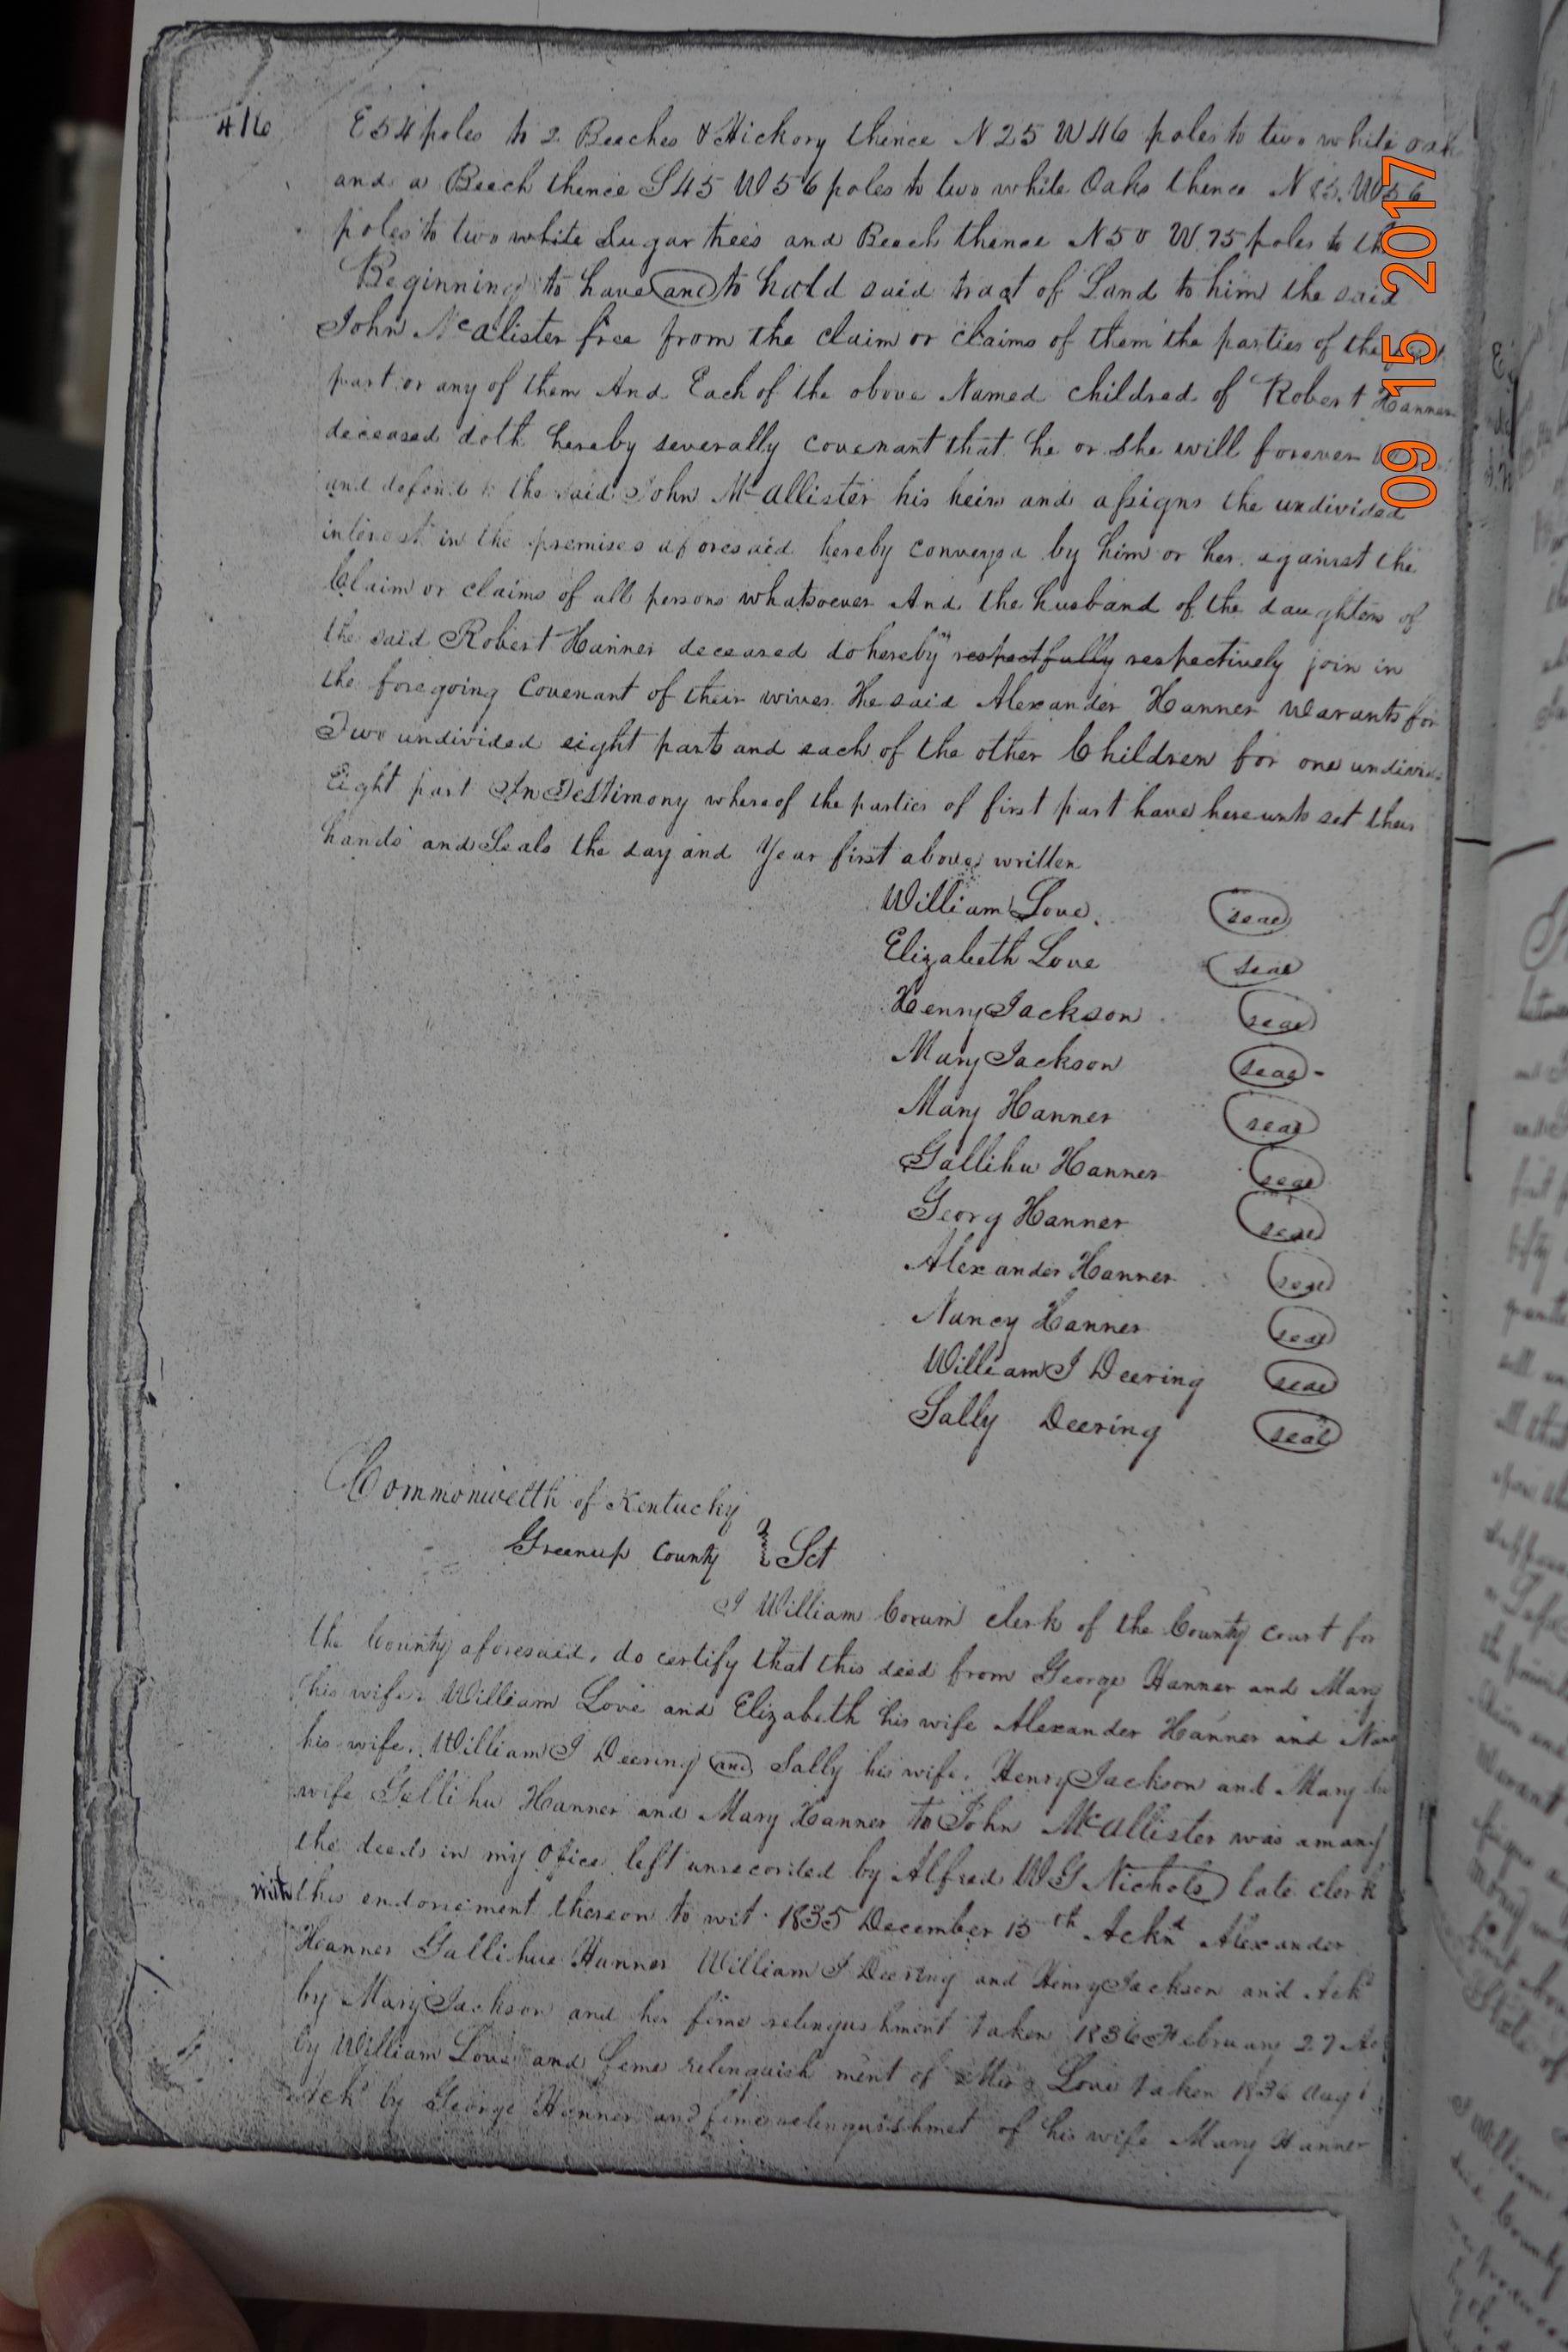 416
E 54 poles to 2 Beeches & Hickory thence N 25 W 46 poles to two white oak
and a Beech thence S 45 W 56 poles to two white Oaks thence N W 56
poles to two white Sugar trees and Beech thence N 50 W 75 poles to the
Beginning to have and to hold said tract of Land to him the said
John McAlister free from the claim or claims of them the parties of the
part or any of them And Each of the above Named childred of Robert Hanner
deceased doth hereby severally covenant that he or she will forever
and defend to the said John McAllister his heirs and assigns the undivided
interest in the premises aforesaid hereby conveyed by him or her against the
Claim or claims of all persons whatsoever And the husband of the daughters of
the said Robert Hanner deceased do hereby respectfully respectively join in
the foregoing Covenant of their wives The said Alexander Hanner Warants for
Two undivided eight parts and each of the other Children for one undivided
Eight part In Testimony whereof the parties of first part have hereunto set their
hands and Seals the day and Year first above written
William Love seal
Elizabeth Love seal
Henry Jackson seal
Mary Jackson seal
Mary Hanner seal
Gallihu Hanner seal
Georg Hanner seal
Alexander Hanner seal
Nancy Hanner seal
William J Deering seal
Sally Deering seal
Commonwelth of Kentucky
Greenup County } Sct
I William Corum clerk of the County court for
the County aforesaid, do certify that this deed from George Hanner and Mary
his wife. William Love and Elizabeth his wife Alexander Hanner and
his wife. William J Deering and Sally his wife. Henry Jackson and Mary his
wife Gallihu Hanner and Mary Hanner to John McAllister was among
the deeds in my Ofice left unrecorded by Alfred W G Nichols late clerk
with this endorsement thereon to wit 1835 December 15th Acknd Alexander
Hanner Gallihue Hanner William J Deering and Henry Jackson and Ackd
by Mary Jackson and her feme relinqushment taken 1836 February 27
by William Love and feme relinquish ment of Mrs Love taken 1836 Aug
Ackd by George Hanner and feme relinquishmet of his wife Mary Hanner
09 15 2017